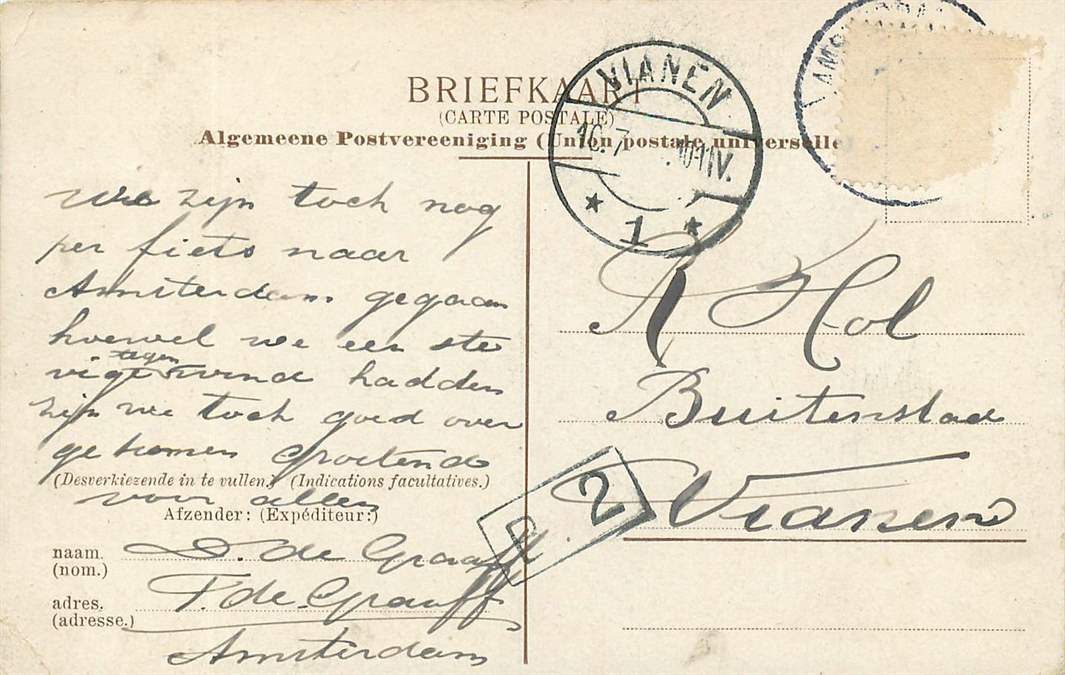 BRIEFKAART
(CARTE POSTALE)
Algemeene Postvereeniging (Union postale universelle)
VIANEN
1
We zijn toch nog
per fiets naar
Amsterdam gegaan
hoewel we een ste
tegen
vige wind hadden
zijn we toch goed over
gekomen Groetend
(Desverkiezende in te vullen.) (Indications facultatives.)
voor allen
Afzender: (Expéditeur:)
naam.
(nom.)
D. de Graaff
adres.
(adresse.)
F. de Graaff
Amsterdam
R Hol
Buitenstad
Vianen
2